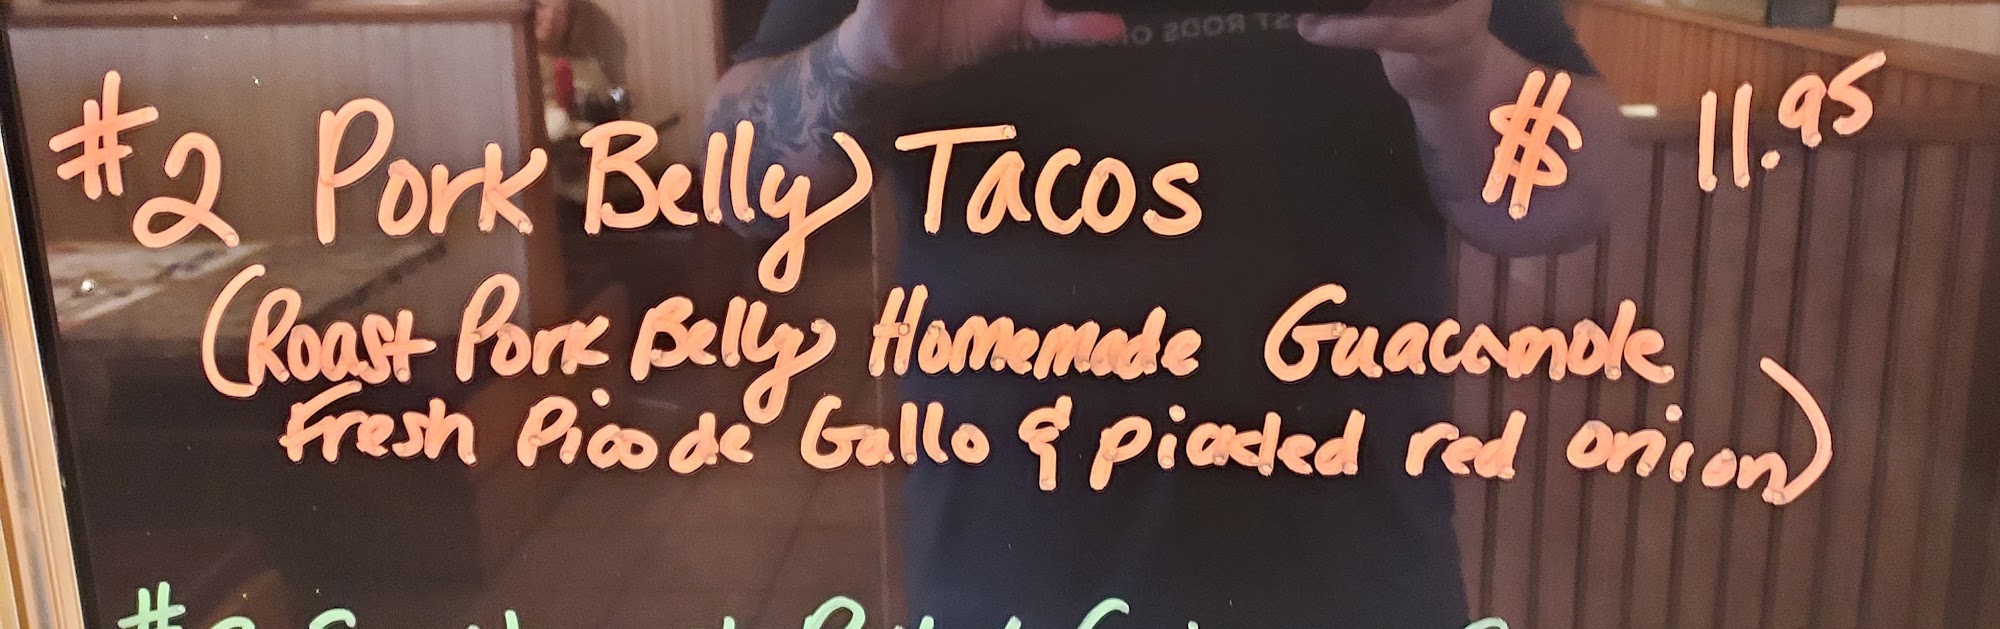 #2 Pork Belly Tacos $ 11.95
(Roast Pork Belly Homemade Guacamole
Fresh Pico de Gallo & pickled red onion)